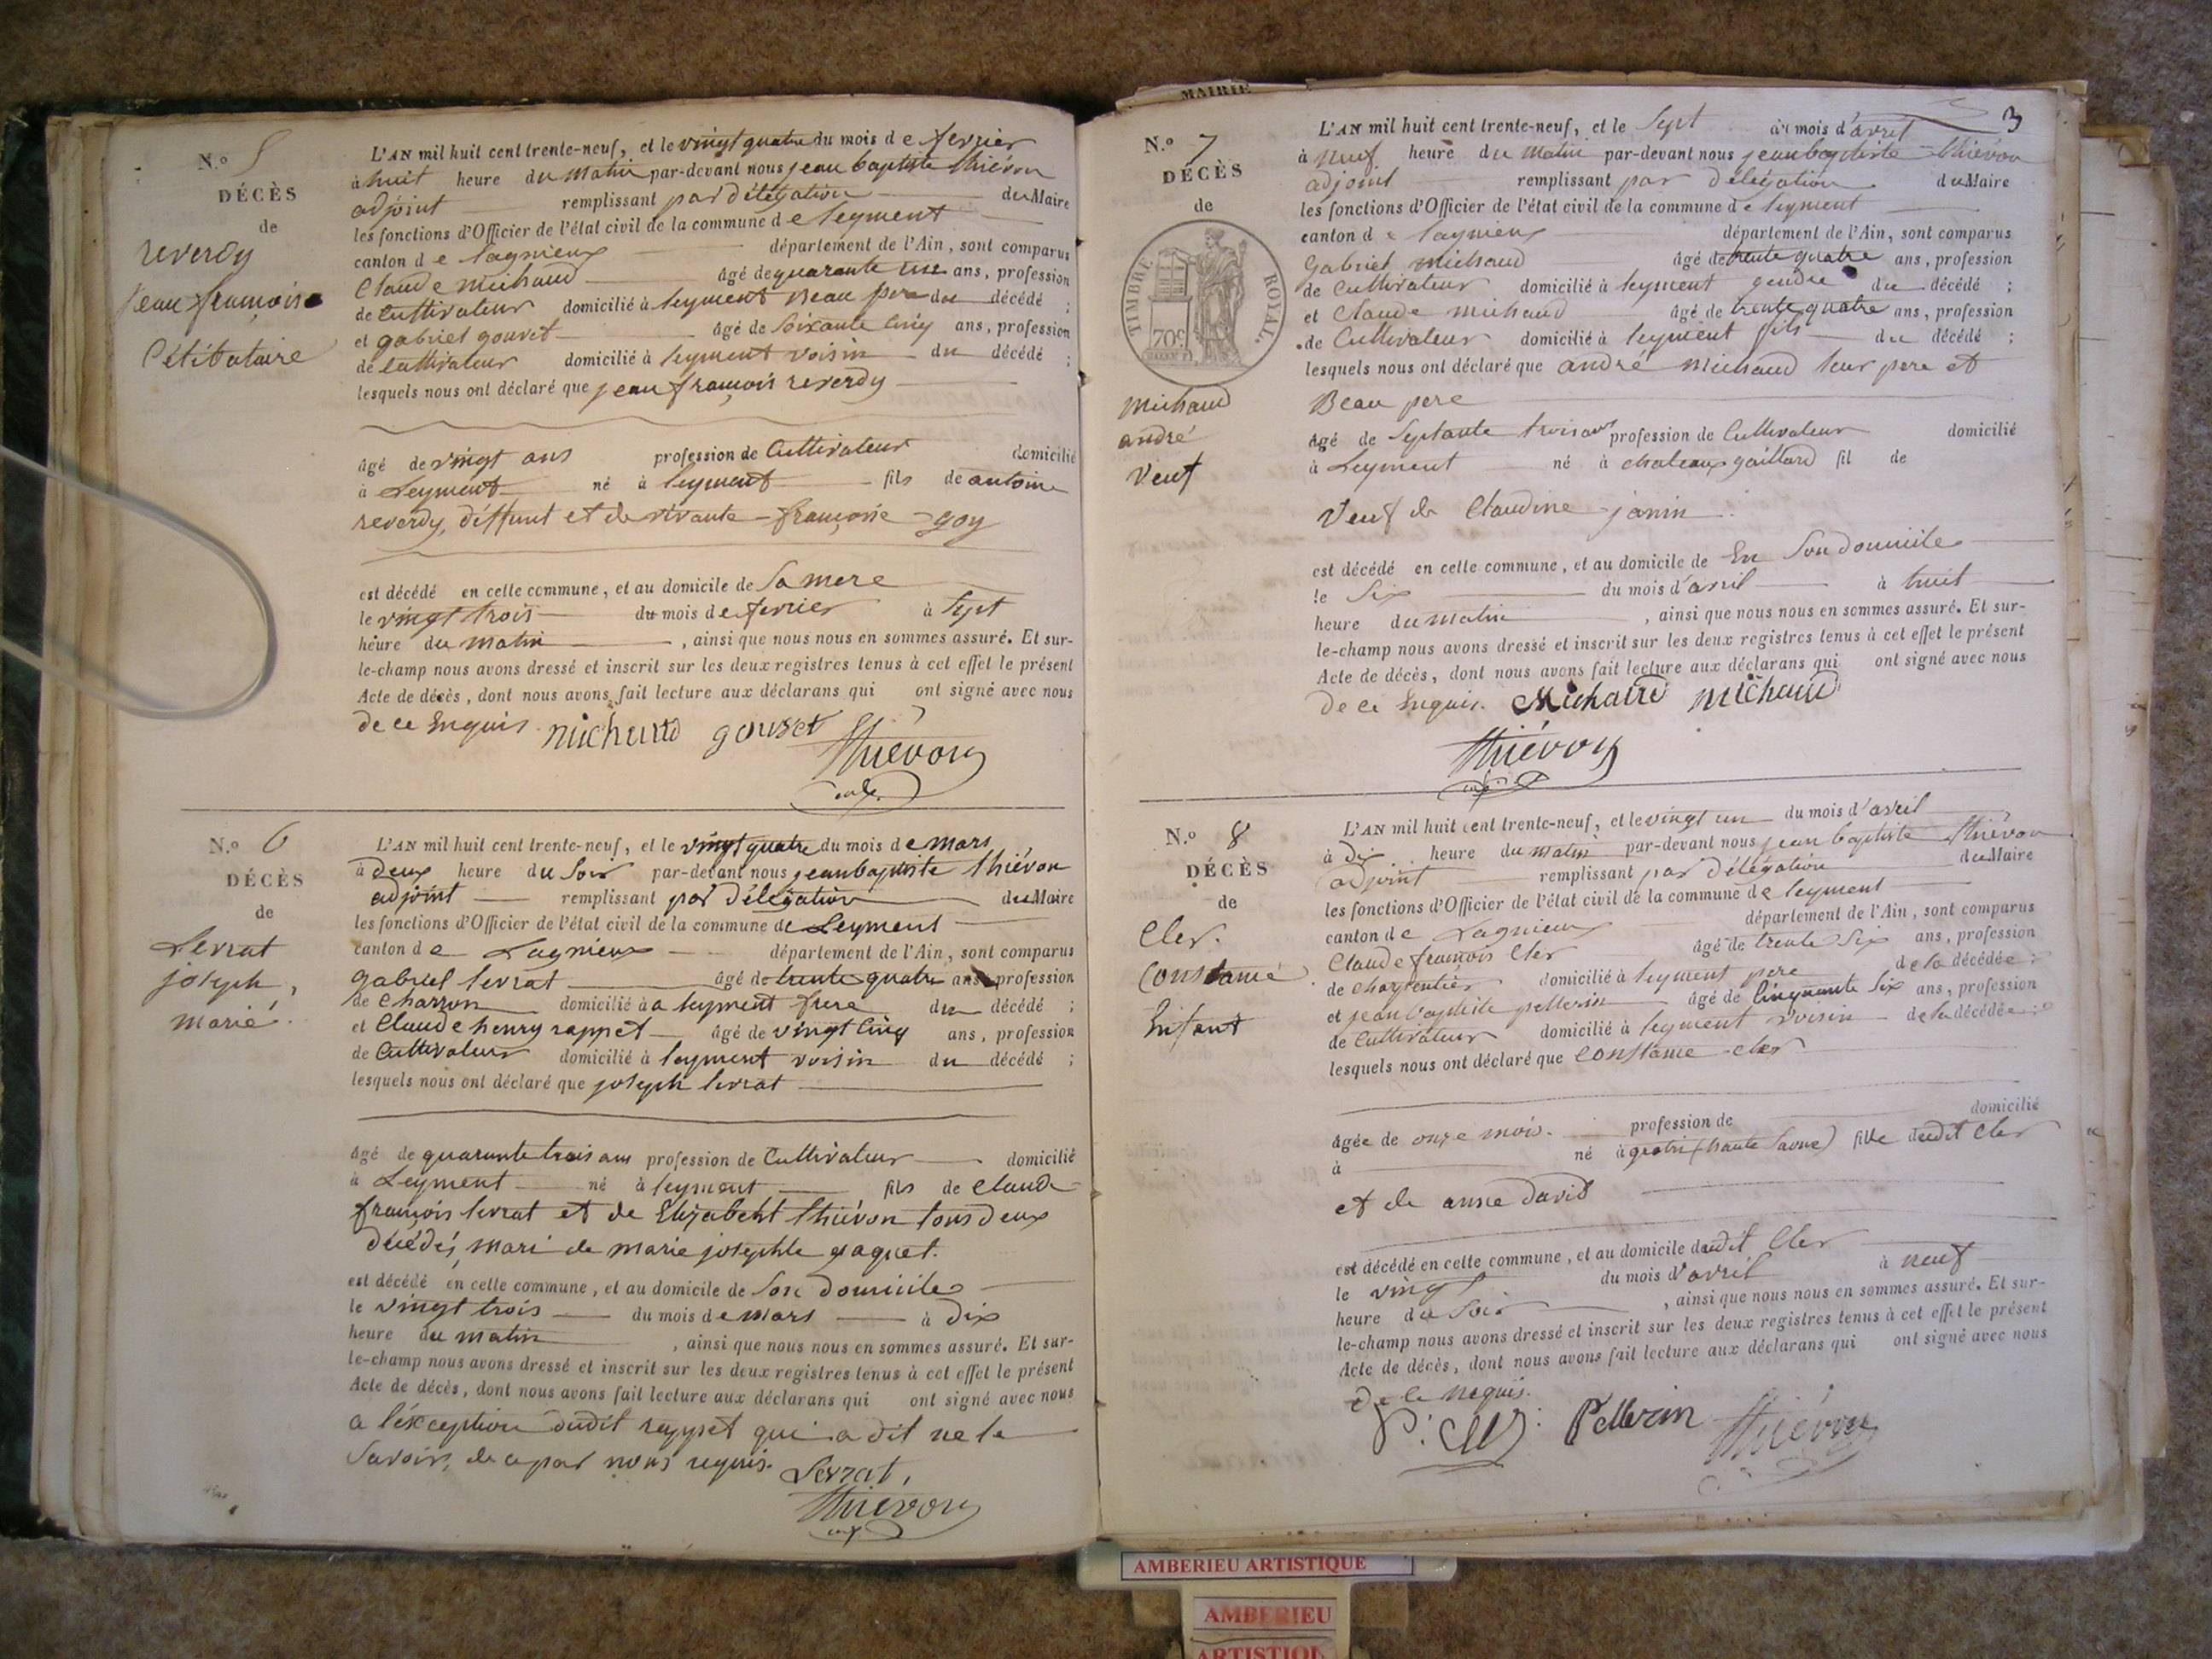 N.o 5
DÉCÈS
de
reverdy
Jean françois
Célibataire
L'AN mil huit cent trente-neuf, et le vingt quatre du mois de fevrier
à huit heure du matin par-devant nous jean baptiste thiévon
adjoint remplissant par délégation du Maire
les fonctions d'Officier de l'état civil de la commune de leyment
canton de lagnieux département de l'Ain, sont comparus
Claude michaud âgé de quarante un ans, profession
de Cultivateur domicilié à leyment Beau pere du décédé ;
et gabriel gouvet âgé de soixante cinq ans, profession
de cultivateur domicilié à leyment voisin du décédé ;
lesquels nous ont déclaré que jean françois reverdy
âgé de vingt ans profession de Cultivateur domicilié
à Leyment né à leyment fils de antoine
reverdy, déffunt et de vivante françoise goy
est décédé en cette commune, et au domicile de Sa mere
le vingt trois du mois de fevrier à Sept
heure du matin, ainsi que nous nous en sommes assuré. Et sur-
le-champ nous avons dressé et inscrit sur les deux registres tenus à cet effet le présent
Acte de décès, dont nous avons fait lecture aux déclarans qui ont signé avec nous
de ce Enquis. michaud gouvet
thiévon
N.o 6
DÉCÈS
de
Levrat
joseph,
marié.
L'AN mil huit cent trente-neuf, et le vingt quatre du mois de mars
à deux heure du Soir par-devant nous jean baptiste thiévon
adjoint remplissant par délégation du Maire
les fonctions d'Officier de l'état civil de la commune de Leyment
canton de Lagnieux département de l'Ain, sont comparus
gabriel levrat âgé de trente quatre ans profession
de Charron domicilié à a leyment frere du décédé ;
et Claude henry rappet âgé de vingt cinq ans, profession
de Cultivateur domicilié à leyment voisin du décédé ;
lesquels nous ont déclaré que joseph levrat
âgé de quarante trois ans profession de Cultivateur domicilié
à Leyment né à leyment fils de Claude
françois levrat et de Elizabeht thiévon tous deux
décédés, mari de marie josephte paquet.
est décédé en cette commune, et au domicile de Son domicile
le vingt trois du mois de mars à dix
heure du matin, ainsi que nous nous en sommes assuré. Et sur-
le-champ nous avons dressé et inscrit sur les deux registres tenus à cet effet le présent
Acte de décès, dont nous avons fait lecture aux déclarans qui ont signé avec nous
a l'éxception dudit rappet qui a dit ne le
Savoir, de ce par nous requis. Levrat,
thiévon
MAIRIE
3
N.o 7
DÉCÈS
de
TIMBRE ROYAL.
70c
michaud
andré
veuf
L'AN mil huit cent trente-neuf, et le Sept du mois d'avril
à neuf heure du matin par-devant nous jean baptiste thiévon
adjoint remplissant par délégation du Maire
les fonctions d'Officier de l'état civil de la commune de leyment
canton de lagnieux département de l'Ain, sont comparus
Gabriel michaud âgé de trente quatre ans, profession
de Cultivateur domicilié à leyment gendre du décédé ;
et Claude michaud âgé de trente quatre ans, profession
de Cultivateur domicilié à leyment fils du décédé ;
lesquels nous ont déclaré que andré michaud leur pere et
Beau pere
âgé de Septante trois ans profession de Cultivateur domicilié
à Leyment né à chateaux gaillard fil de
Veuf de Claudine janin
est décédé en cette commune, et au domicile de En Son domicile
le Six du mois d'avril à huit
heure du matin, ainsi que nous nous en sommes assuré. Et sur-
le-champ nous avons dressé et inscrit sur les deux registres tenus à cet effet le présent
Acte de décès, dont nous avons fait lecture aux déclarans qui ont signé avec nous
de ce Enquis. Michaud michaud
thiévon
N.o 8
DÉCÈS
de
Cler.
Constance
Enfant
L'AN mil huit cent trente-neuf, et le vingt un du mois d'avril
à dix heure du matin par-devant nous jean baptiste thiévon
adjoint remplissant par délégation du Maire
les fonctions d'Officier de l'état civil de la commune de leyment
canton de Lagnieux département de l'Ain, sont comparus
Claude françois Cler âgé de trente Six ans, profession
de charpentier domicilié à leyment pere de la décédée ;
et jean baptiste pellerin âgé de Cinquante Six ans, profession
de Cultivateur domicilié à leyment voisin de la décédée ;
lesquels nous ont déclaré que Constance cler
âgée de onze mois. profession de domicilié
à né à (haute Saone) fille dudit Cler
et de anne david
est décédé en cette commune, et au domicile dudit Cler
le vingt du mois d'avril à neuf
heure du Soir, ainsi que nous nous en sommes assuré. Et sur-
le-champ nous avons dressé et inscrit sur les deux registres tenus à cet effet le présent
Acte de décès, dont nous avons fait lecture aux déclarans qui ont signé avec nous
de ce requis.
Pellerin thiévon
AMBERIEU ARTISTIQUE
AMBERIEU